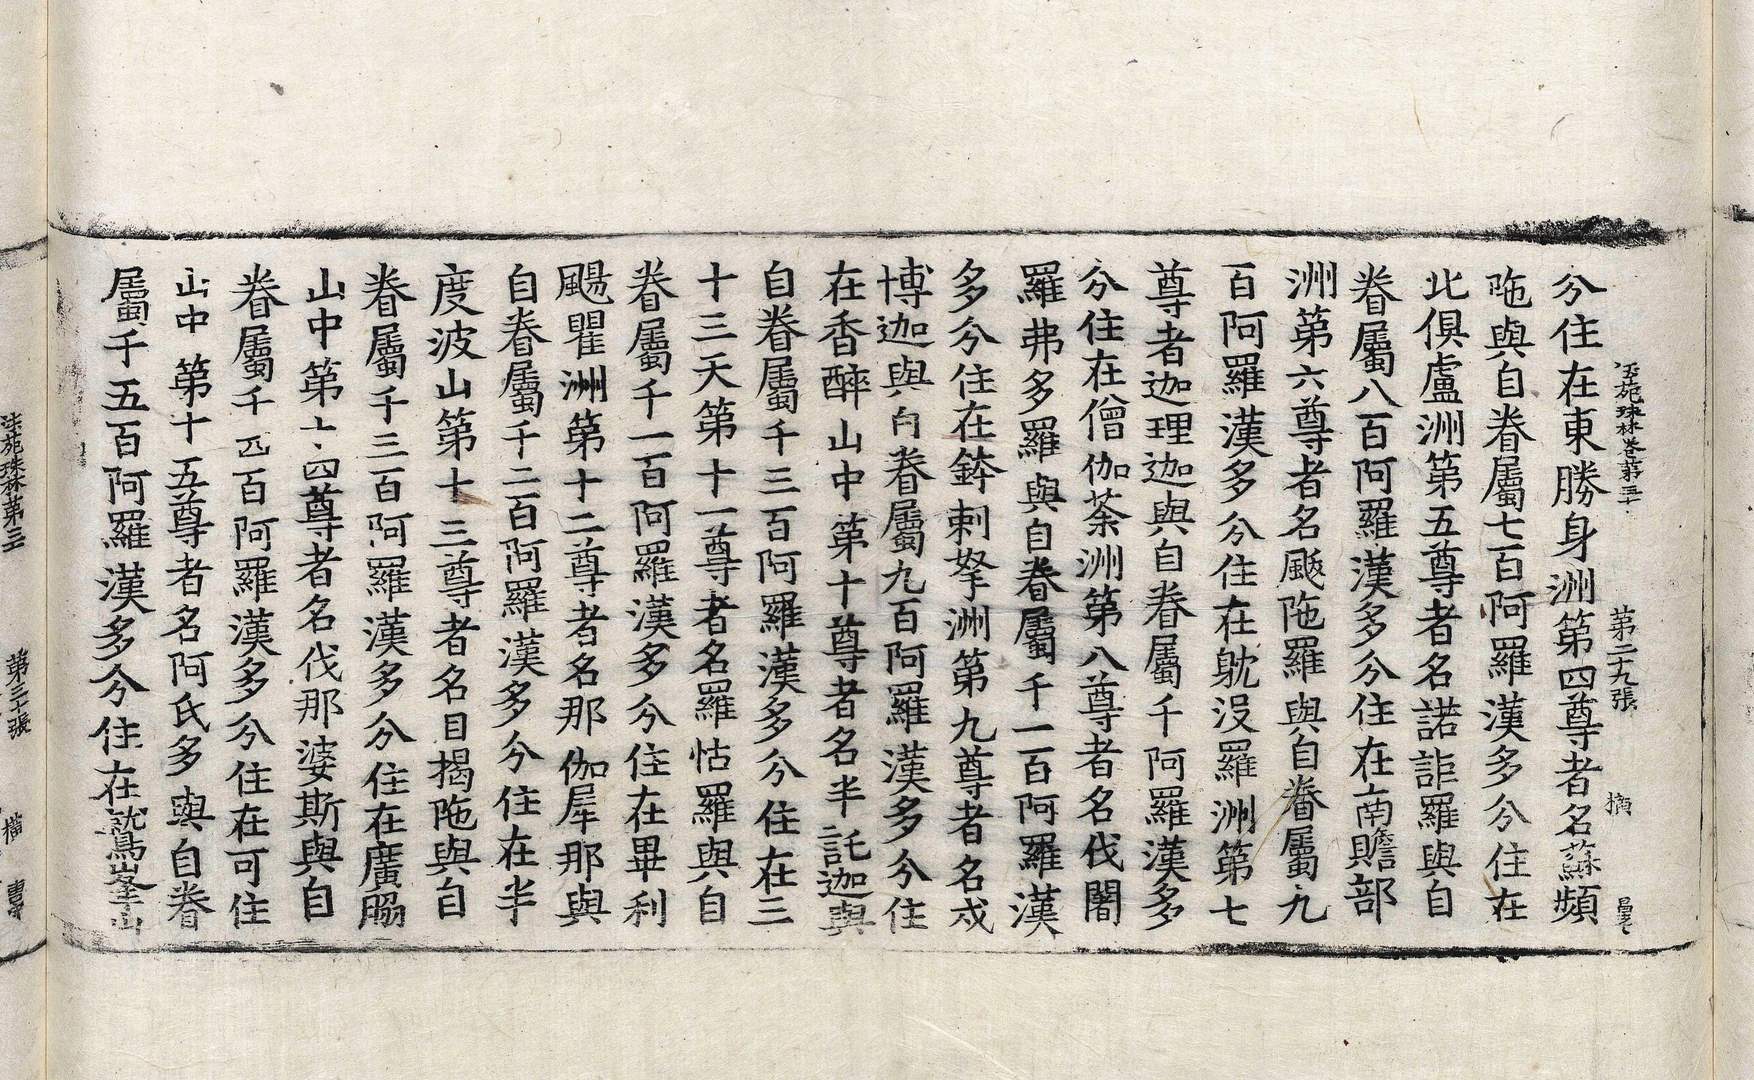 法苑珠林卷第三十 第二十九張 橫
分住在東勝身洲第四尊者名蘇頻
陁與自眷屬七百阿羅漢多分住在
北俱盧洲第五尊者名諾詎羅與自
眷屬八百阿羅漢多分住在南贍部
洲第六尊者名䟦陁羅與自眷屬九
百阿羅漢多分住在躭没羅洲第七
尊者迦理迦與自眷屬千阿羅漢多
分住在僧伽荼洲第八尊者名伐闍
羅弗多羅與自眷屬千一百阿羅漢
多分住在鉢剌拏洲第九尊者名戍
博迦與自眷屬九百阿羅漢多分住
在香醉山中第十尊者名半託迦與
自眷屬千三百阿羅漢多分住在三
十三天第十一尊者名羅怙羅與自
眷屬千一百阿羅漢多分住在畢利
颺瞿洲第十二尊者名那伽犀那與
自眷屬千二百阿羅漢多分住在半
度波山第十三尊者名因揭陁與自
眷屬千三百阿羅漢多分住在廣脇
山中第十四尊者名伐那婆斯與自
眷屬千四百阿羅漢多分住在可住
山中第十五尊者名阿氏多與自眷
屬千五百阿羅漢多分住在鷲峯山
法苑珠林第三 第三十張 橫